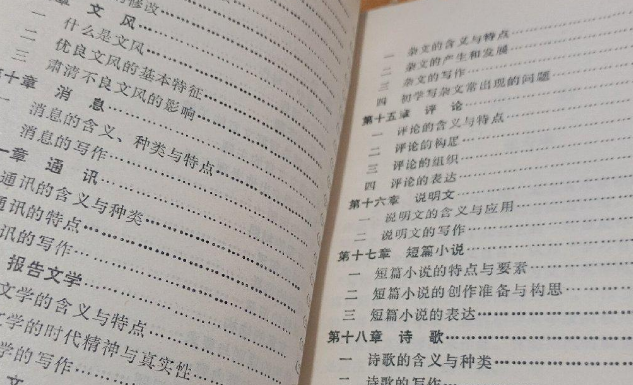 修改
文风
一 什么是文风
二 优良文风的基本特征
三 肃清不良文风的影响
第十章 消息
一 消息的含义、种类与特点
消息的写作
一章 通讯
通讯的含义与种类
通讯的特点
讯的写作
报告文学
文学的含义与特点
文学的时代精神与真实性
学的写作
一 杂文的含义与特点
二 杂文的产生和发展
三 杂文的写作
四 初学写杂文常出现的问题
第十五章 评论
一 评论的含义与特点
二 评论的构思
三 评论的组织
四 评论的表达
第十六章 说明文
一 说明文的含义与应用
二 说明文的写作
第十七章 短篇小说
一 短篇小说的特点与要素
二 短篇小说的创作准备与构思
三 短篇小说的表达
第十八章 诗歌
一 诗歌的含义与种类
诗歌的写作